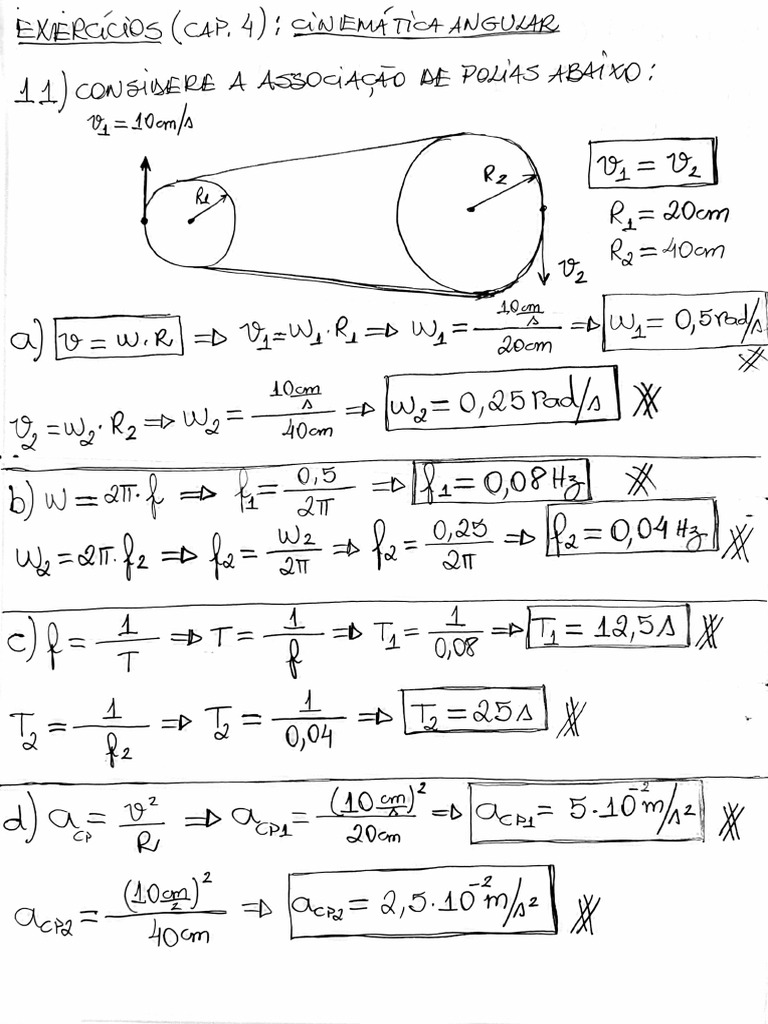 EXERCÍCIOS (CAP. 4): CINEMÁTICA ANGULAR
11) CONSIDERE A ASSOCIAÇÃO DE POLIAS ABAIXO:
v₁ = 10cm/s
R₁
R₂
v₂
v₁ = v₂
R₁ = 20cm
R₂ = 40cm
a) v = w·R ⇒ v₁ = w₁·R₁ ⇒ w₁ = (10cm/s)/20cm ⇒ w₁ = 0,5rad/s
v₂ = w₂·R₂ ⇒ w₂ = (10cm/s)/40cm ⇒ w₂ = 0,25rad/s
b) w = 2π·f ⇒ f₁ = 0,5/2π ⇒ f₁ = 0,08Hz
w₂ = 2π·f₂ ⇒ f₂ = w₂/2π ⇒ f₂ = 0,25/2π ⇒ f₂ = 0,04Hz
c) f = 1/T ⇒ T = 1/f ⇒ T₁ = 1/0,08 ⇒ T₁ = 12,5s
T₂ = 1/f₂ ⇒ T₂ = 1/0,04 ⇒ T₂ = 25s
d) a_CP = v²/R ⇒ a_CP1 = (10cm/s)²/20cm ⇒ a_CP1 = 5·10⁻²m/s²
a_CP2 = (10cm/s)²/40cm ⇒ a_CP2 = 2,5·10⁻²m/s²